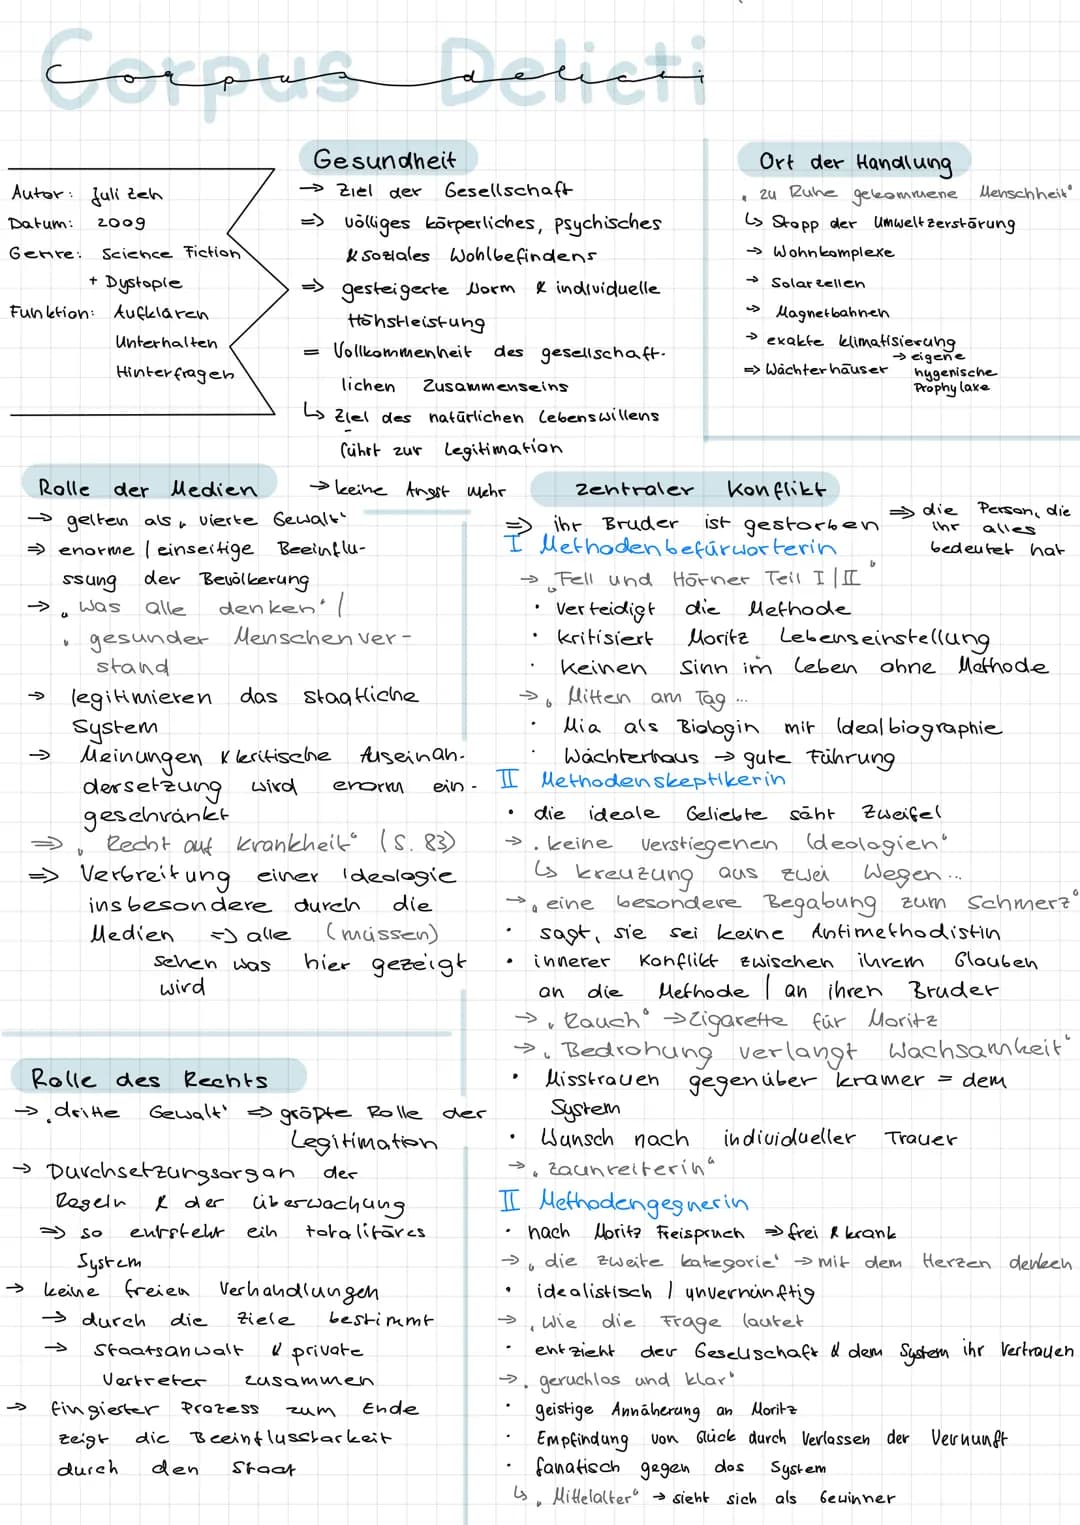 Corpus Delicti
Corpus delicti
Autor: Juli Zeh
Datum: 2009
Genre: Science Fiction
+ Dystopie
Funktion: Aufklären
Unterhalten
Hinterfragen
Gesundheit
→ Ziel der Gesellschaft
⇒ völliges körperliches, psychisches
& soziales Wohlbefindens
⇒ gesteigerte Norm & individuelle
Höhstleistung
= Vollkommenheit des gesellschaft-
lichen Zusammenseins
↳ Ziel des natürlichen Lebenswillens
führt zur Legitimation
→ keine Angst mehr
Ort der Handlung
„zu Ruhe gekommene Menschheit“
↳ Stopp der Umweltzerstörung
→ Wohnkomplexe
→ Solarzellen
→ Magnetbahnen
→ exakte klimatisierung
⇒ Wächterhäuser → eigene
hygenische
Prophylaxe
Rolle der Medien
→ gelten als „vierte Gewalt“
⇒ enorme / einseitige Beeinflu-
ssung der Bevölkerung
→ „Was alle denken“ /
„gesunder Menschenver-
stand
→ legitimieren das staatliche
System
→ Meinungen & kritische Auseinan-
dersetzung wird enorm ein-
geschränkt
⇒ „Recht auf Krankheit“ (S. 83)
⇒ Verbreitung einer Ideologie
insbesondere durch die
Medien ⇒ alle (müssen)
sehen was hier gezeigt
wird
Rolle des Rechts
→ „dritte Gewalt“ ⇒ größte Rolle der
Legitimation
→ Durchsetzungsorgan der
Regeln & der überwachung
⇒ so entsteht ein totalitäres
System
→ keine freien Verhandlungen
→ durch die Ziele bestimmt
→ Staatsanwalt & private
Vertreter zusammen
→ fingierter Prozess zum Ende
zeigt die Beeinflussbarkeit
durch den Staat
zentraler Konflikt
⇒ ihr Bruder ist gestorben ⇒ die Person, die
ihr alles
bedeutet hat
I Methodenbefürworterin
→ „Fell und Hörner Teil I/II“
• verteidigt die Methode
• kritisiert Moritz Lebenseinstellung
• keinen Sinn im Leben ohne Methode
→ „Mitten am Tag ...
• Mia als Biologin mit Idealbiographie
• Wächterhaus → gute Führung
II Methodenskeptikerin
• die ideale Geliebte säht Zweifel
→ „keine verstiegenen Ideologien“
↳ kreuzung aus zwei Wegen...
→ „eine besondere Begabung zum Schmerz“
• sagt, sie sei keine Antimethodistin
• innerer Konflikt zwischen ihrem Glauben
an die Methode / an ihren Bruder
→ „Rauch“ → Zigarette für Moritz
→ „Bedrohung verlangt Wachsamkeit“
• Misstrauen gegenüber kramer = dem
System
• Wunsch nach individueller Trauer
→ „Zaunreiterin“
II Methodengegnerin
• nach Moritz Freispruch ⇒ frei & krank
→ „die zweite kategorie“ → mit dem Herzen denken
• idealistisch / unvernünftig
→ „Wie die Frage lautet
• entzieht der Gesellschaft & dem System ihr Vertrauen
→ „geruchlos und klar“
• geistige Annäherung an Moritz
• Empfindung von Glück durch Verlassen der Vernunft
• fanatisch gegen das System
↳ „Mittelalter“ → sieht sich als Gewinner